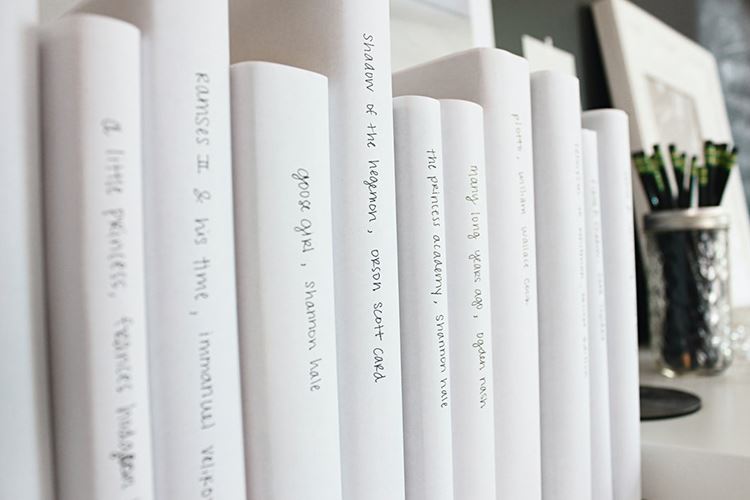 a little princess, frances hodgson
ramses II & his time, immanuel veliko
goose girl, shannon hale
shadow of the hegemon, orson scott card
the princess academy, shannon hale
many long years ago, ogden nash
plotto, william wallace cook